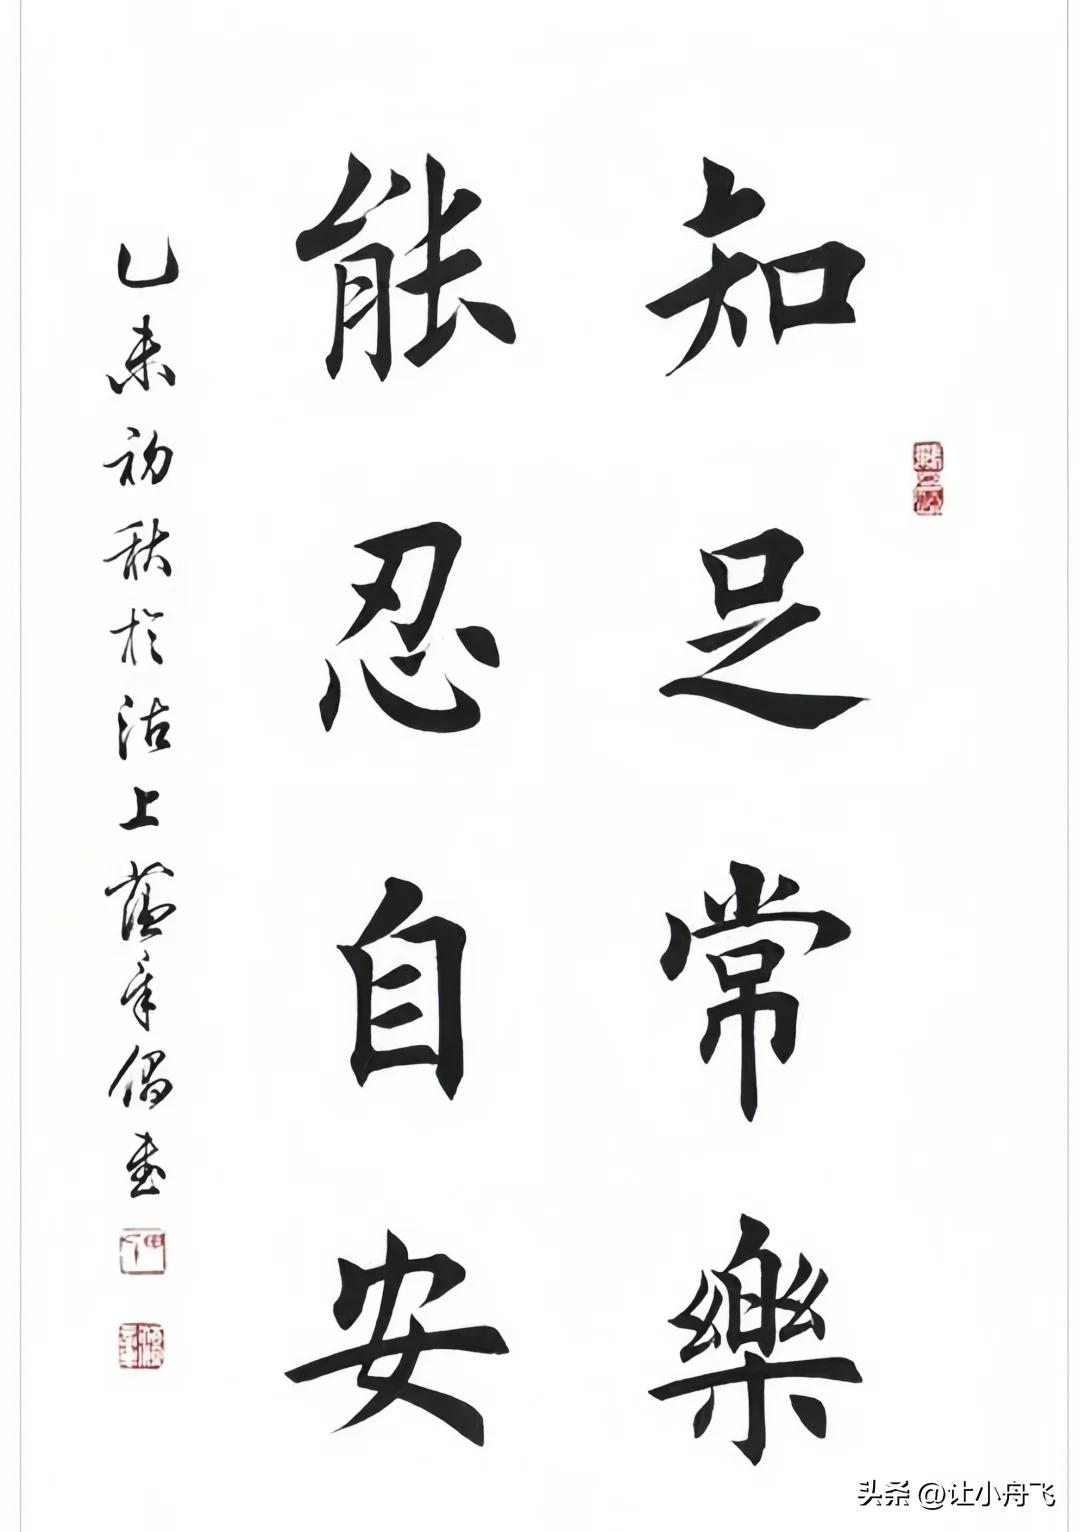 知足常樂
能忍自安
乙未初秋於沽上蘊章偶書
头条 @让小舟飞